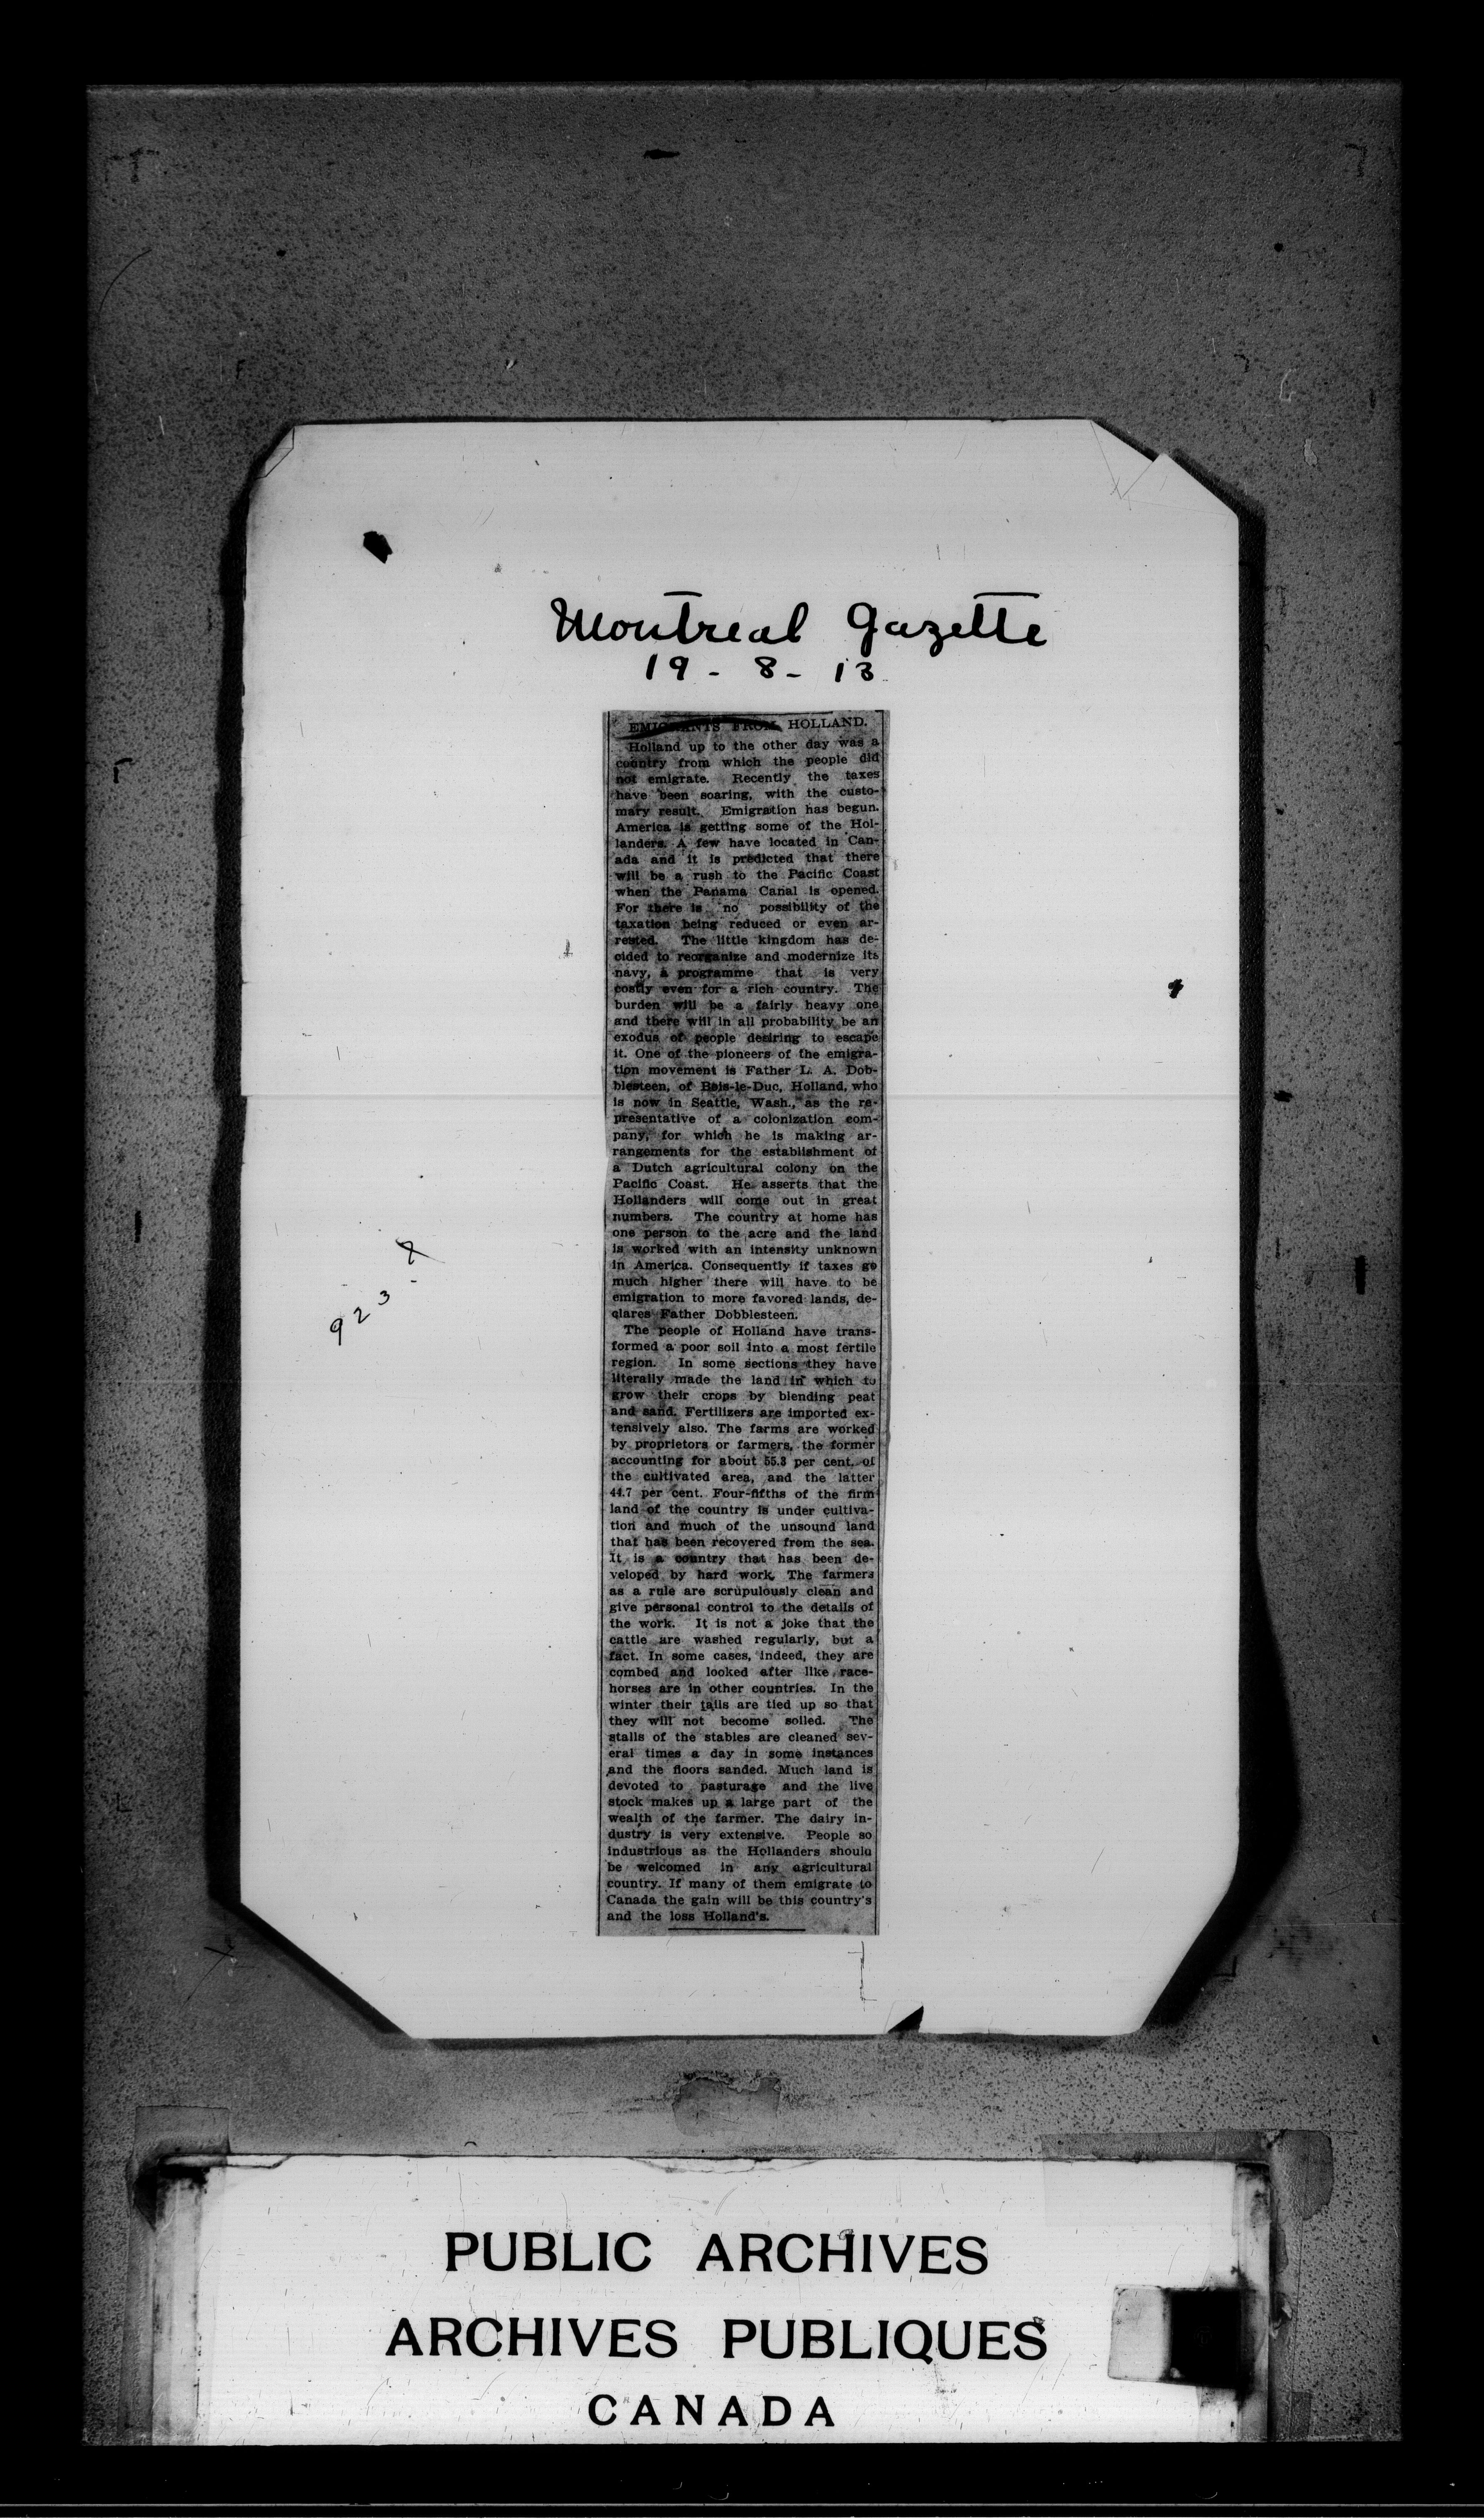 Montreal Gazette
19 - 8 - 13
EMIGRANTS FROM HOLLAND.
Holland up to the other day was a
country from which the people did
not emigrate. Recently the taxes
have been soaring, with the custo-
mary result. Emigration has begun.
America is getting some of the Hol-
landers. A few have located in Can-
ada and it is predicted that there
will be a rush to the Pacific Coast
when the Panama Canal is opened.
For there is no possibility of the
taxation being reduced or even ar-
rested. The little kingdom has de-
cided to reorganize and modernize its
navy, a programme that is very
costly even for a rich country. The
burden will be a fairly heavy one
and there will in all probability be an
exodus of people desiring to escape
it. One of the pioneers of the emigra-
tion movement is Father L. A. Dob-
blesteen, of Bois-le-Duc, Holland, who
is now in Seattle, Wash., as the re-
presentative of a colonization com-
pany, for which he is making ar-
rangements for the establishment of
a Dutch agricultural colony on the
Pacific Coast. He asserts that the
Hollanders will come out in great
numbers. The country at home has
one person to the acre and the land
is worked with an intensity unknown
in America. Consequently if taxes go
much higher there will have to be
emigration to more favored lands, de-
clares Father Dobblesteen.
The people of Holland have trans-
formed a poor soil into a most fertile
region. In some sections they have
literally made the land in which to
grow their crops by blending peat
and sand. Fertilizers are imported ex-
tensively also. The farms are worked
by proprietors or farmers, the former
accounting for about 55.3 per cent. of
the cultivated area, and the latter
44.7 per cent. Four-fifths of the firm
land of the country is under cultiva-
tion and much of the unsound land
that has been recovered from the sea.
It is a country that has been de-
veloped by hard work. The farmers
as a rule are scrupulously clean and
give personal control to the details of
the work. It is not a joke that the
cattle are washed regularly, but a
fact. In some cases, indeed, they are
combed and looked after like race-
horses are in other countries. In the
winter their tails are tied up so that
they will not become soiled. The
stalls of the stables are cleaned sev-
eral times a day in some instances
and the floors sanded. Much land is
devoted to pasturage and the live
stock makes up a large part of the
wealth of the farmer. The dairy in-
dustry is very extensive. People so
industrious as the Hollanders should
be welcomed in any agricultural
country. If many of them emigrate to
Canada the gain will be this country's
and the loss Holland's.
923-
PUBLIC ARCHIVES
ARCHIVES PUBLIQUES
CANADA